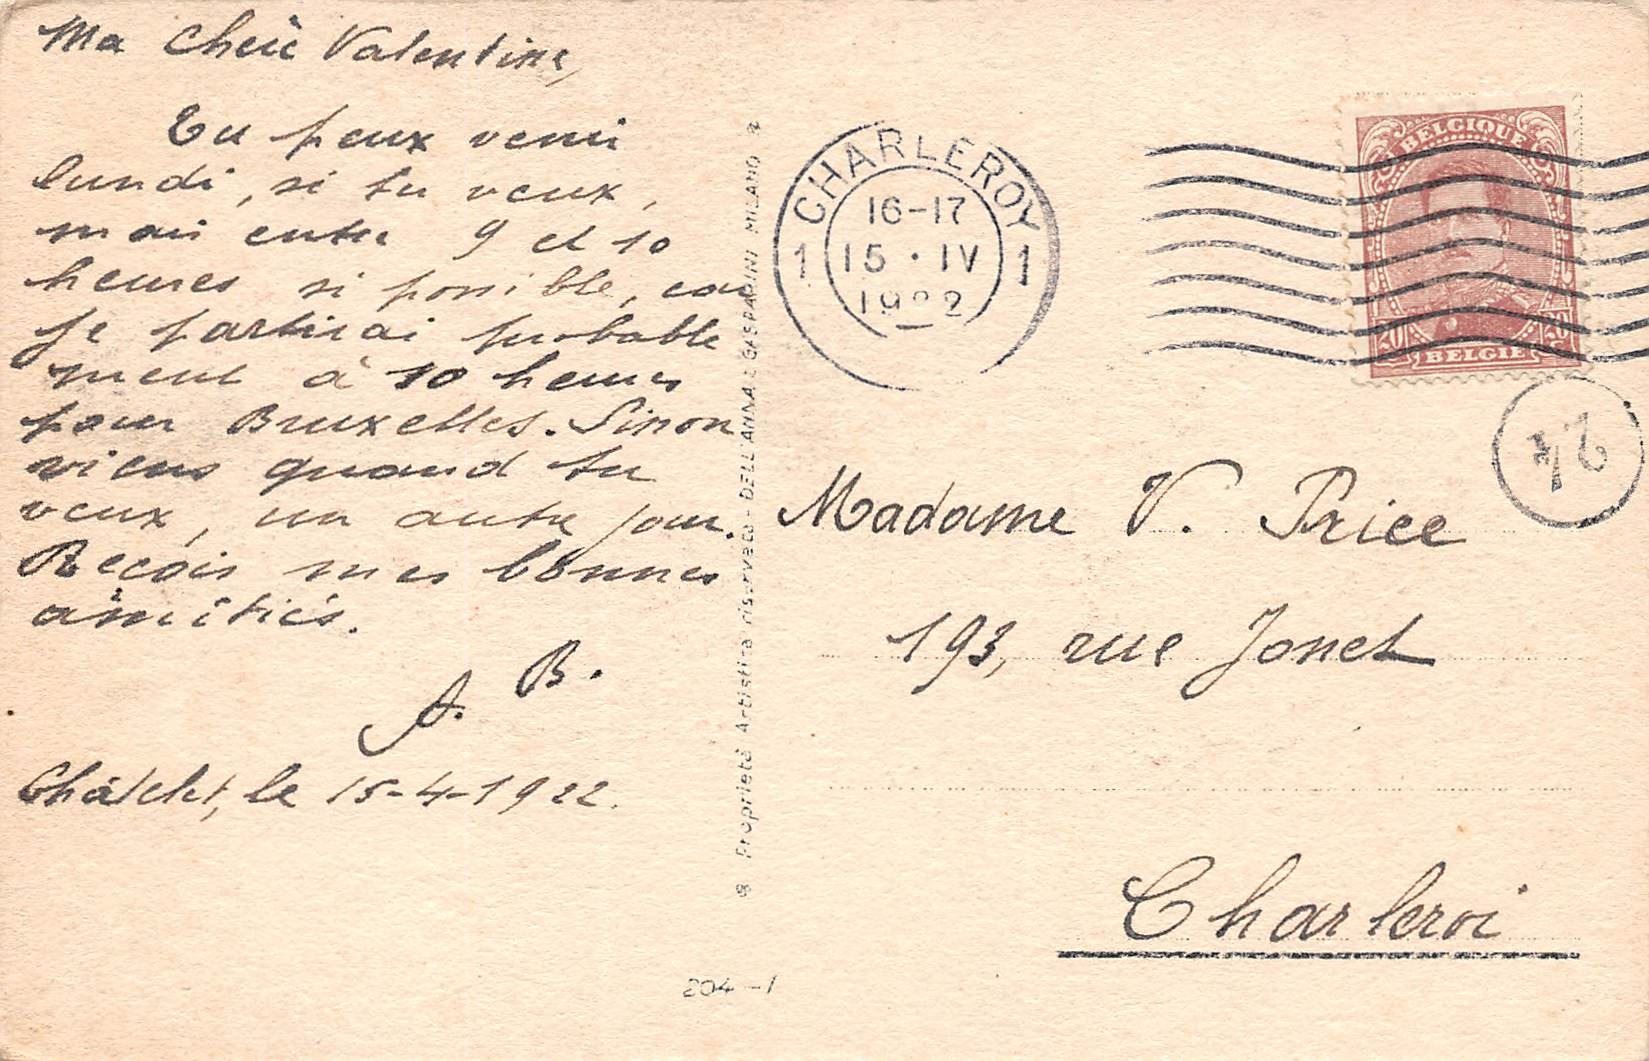 Ma Chère Valentine,
Tu peux venir
lundi, si tu veux,
mais entre 9 et 10
heures si possible, car
je partirai probable
ment à 10 heures
pour Bruxelles. Sinon
viens quand tu
veux, un autre jour.
Reçois mes bonnes
amitiés.
A. B.
Châtelet, le 15-4-1922.
Proprietà Artistica riservata - DELL'ANNA & GASPARINI MILANO
204-1
CHARLEROY
16-17
1 15·IV 1
1922
BELGIQUE
20 BELGIE 20
24
Madame V. Price
193, rue Jonet
Charleroi